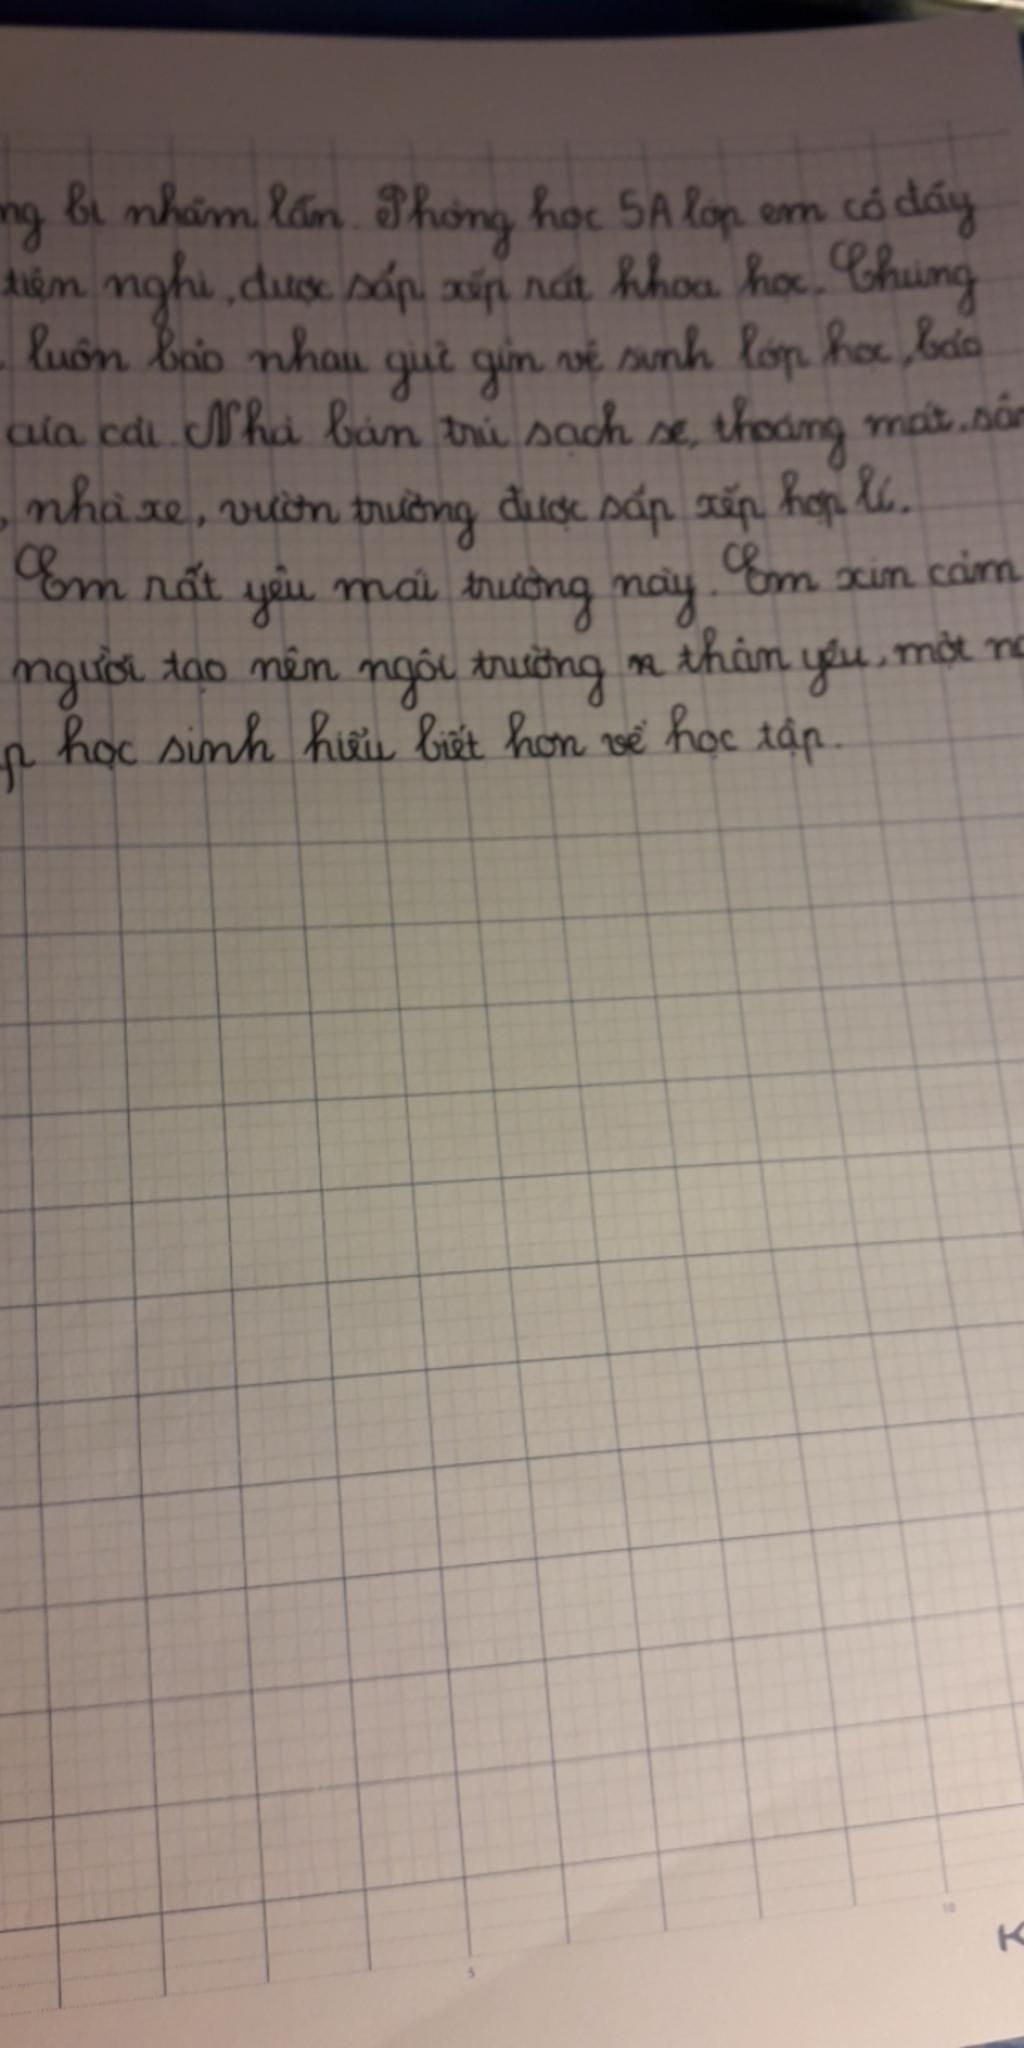 ng bị nhầm lẫn. Phòng học 5A lớp em có đầy
tiện nghi, được sắp xếp rất khoa học. Chúng
luôn bảo nhau giữ gìn vệ sinh lớp học, bảo
của cải. Nhà bán trú sạch sẽ, thoáng mát. sân
, nhà xe, vườn trường được sắp xếp hợp lí.
Em rất yêu mái trường này. Em xin cảm
người tạo nên ngôi trường thân yêu, một
học sinh hiểu biết hơn về học tập.
5
10
K